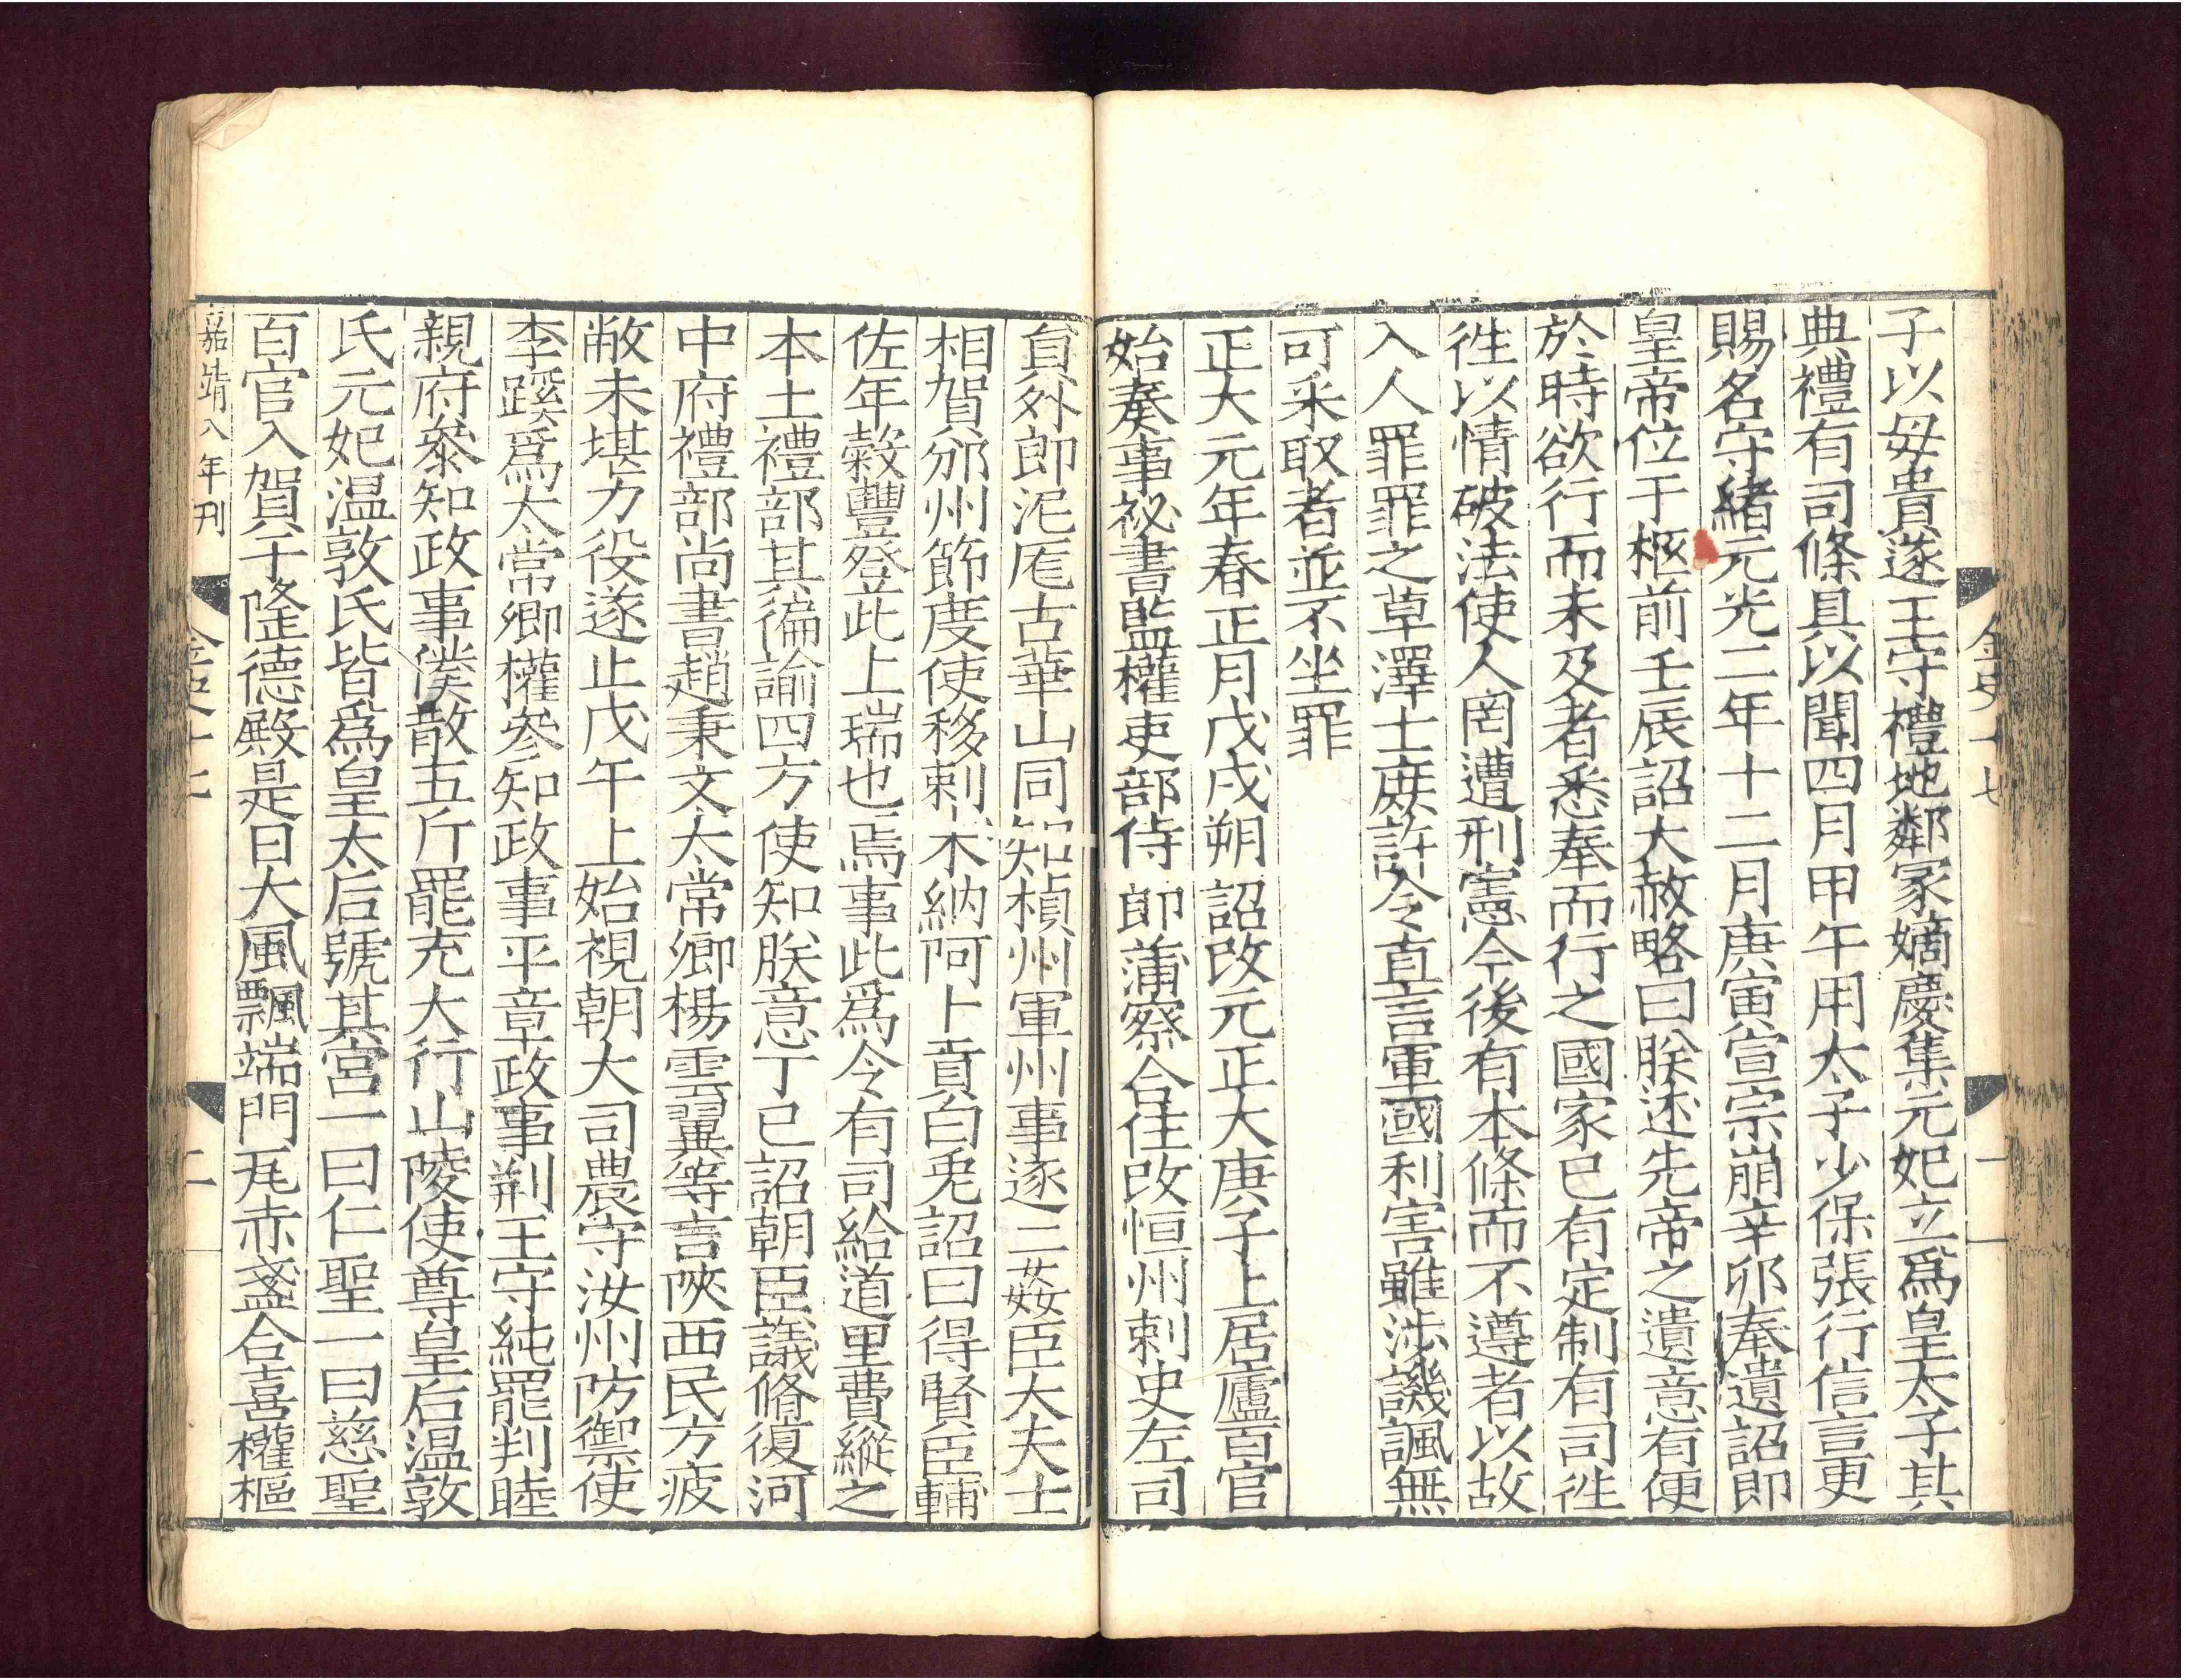 金史十七
一
子以母貴遂王守禮地鄰冢嫡慶集元妃立爲皇太子其
典禮有司條具以聞四月甲午用太子少保張行信言更
賜名守緒元光二年十二月庚寅宣宗崩辛卯奉遺詔即
皇帝位于柩前壬辰詔大赦略曰朕述先帝之遺意有便
於時欲行而未及者悉奉而行之國家已有定制有司徃
徃以情破法使人罔遭刑憲今後有本條而不遵者以故
入人罪罪之草澤士庶許令直言軍國利害雖涉譏諷無
可采取者並不坐罪
正大元年春正月戊戌朔詔改元正大庚子上居廬百官
始奏事祕書監權吏部侍郎蒲察合住改恒州刺史左司
員外郎泥厖古華山同知楨州軍州事逐二姦臣大夫士
相賀邠州節度使移剌木納阿卜貢白兎詔曰得賢臣輔
佐年穀豐登此上瑞也焉事此爲令有司給道里費縱之
本土禮部其徧諭四方使知朕意丁巳詔朝臣議脩復河
中府禮部尚書趙秉文太常卿楊雲翼等言陝西民方疲
敝未堪力役遂止戊午上始視朝大司農守汝州防禦使
李蹊爲太常卿權參知政事平章政事荆王守純罷判睦
親府參知政事僕散五斤罷充大行山陵使尊皇后温敦
氏元妃温敦氏皆爲皇太后號其宮一曰仁聖一曰慈聖
百官入賀于隆德殿是日大風飄端門瓦赤盞合喜權樞
嘉靖八年刊
金史十七
二